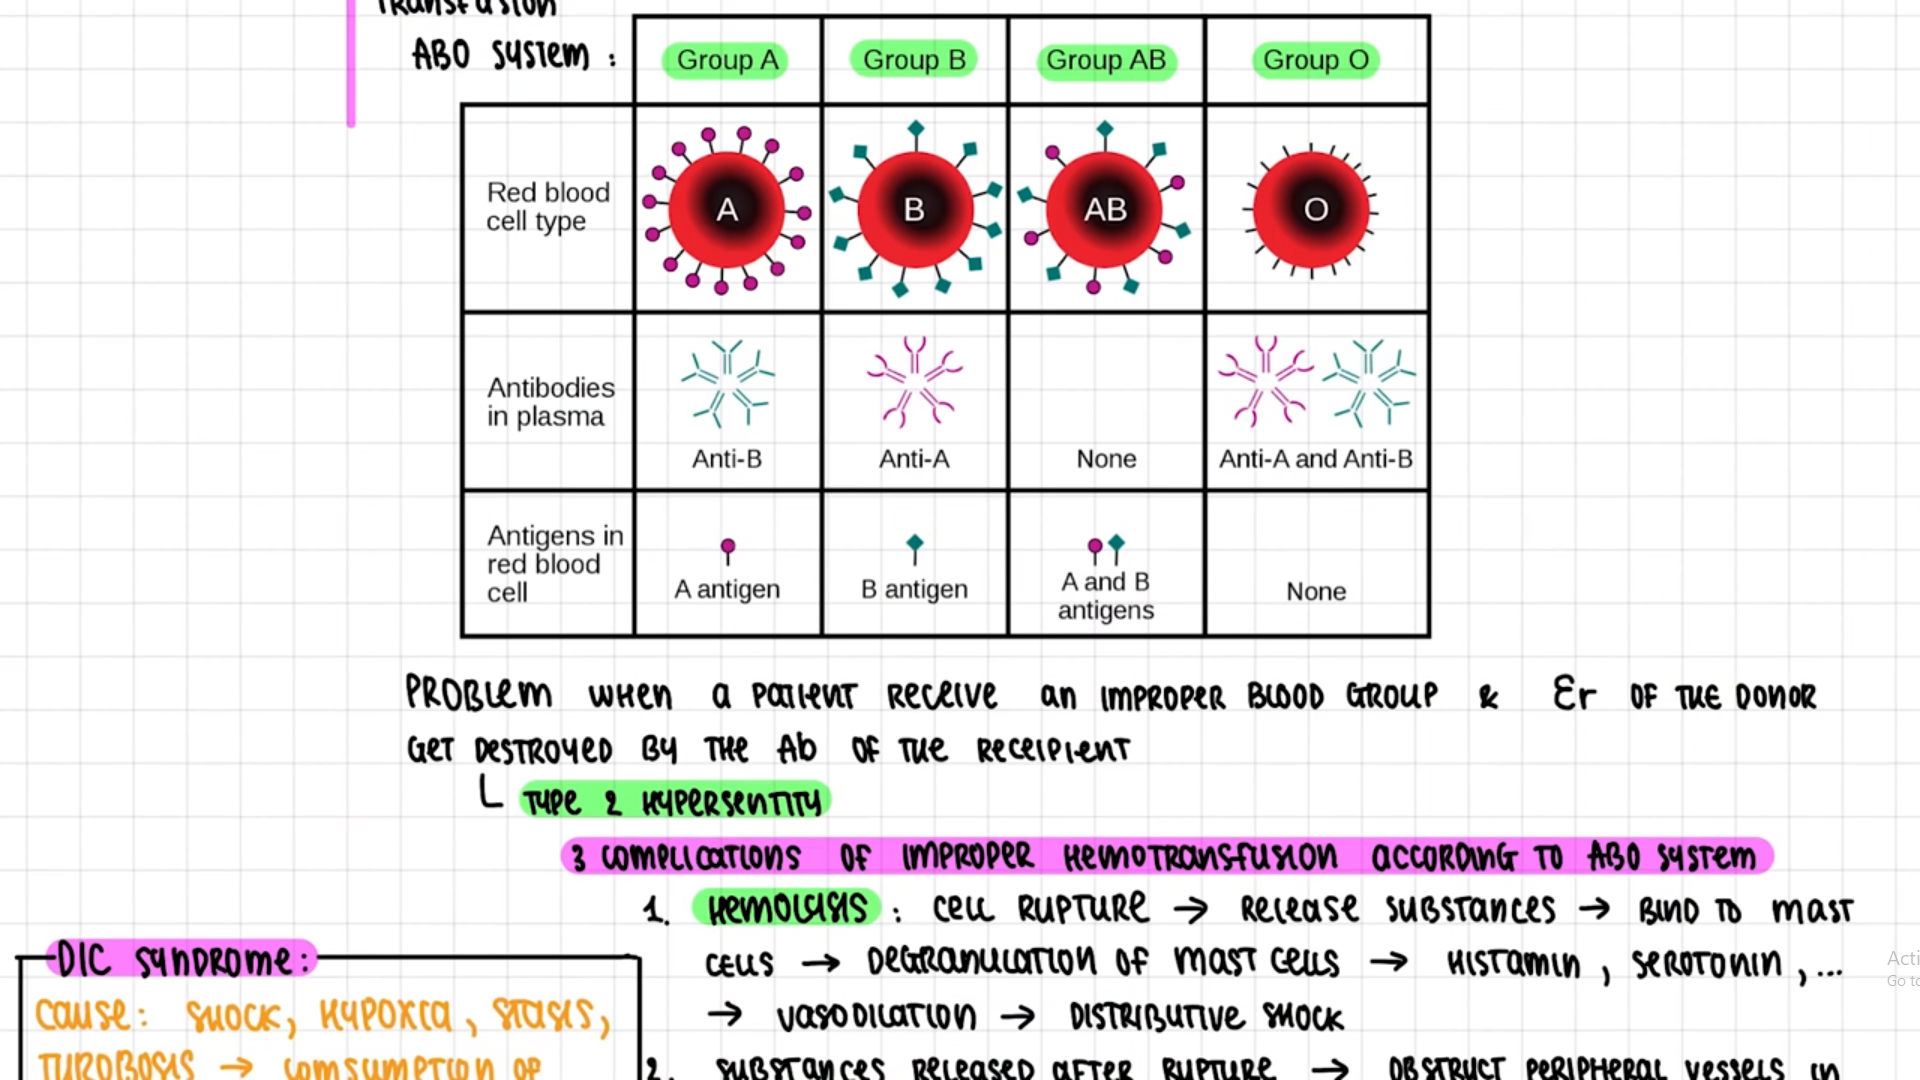 Transfusion
ABO system :
Group A Group B Group AB Group O
Red blood
cell type
A B AB O
Antibodies
in plasma
Anti-B Anti-A None Anti-A and Anti-B
Antigens in
red blood
cell
A antigen B antigen A and B
antigens None
PROBLEM WHEN a PATIENT RECEIVE an IMPROPER BLOOD GROUP & Er OF THE DONOR
GET DESTROYED BY THE Ab OF THE RECEIPIENT
TYPE 2 HYPERSENTITY
3 COMPLICATIONS OF IMPROPER HEMOTRANSFUSION ACCORDING TO ABO SYSTEM
1. HEMOLYSIS : CELL RUPTURE → RELEASE SUBSTANCES → BIND TO MAST
CELLS → DEGRANULATION OF MAST CELLS → HISTAMIN , SEROTONIN , ...
→ VASODILATION → DISTRIBUTIVE SHOCK
2. SUBSTANCES RELEASED AFTER RUPTURE → OBSTRUCT PERIPHERAL VESSELS IN
DIC SYNDROME:
CAUSE: SHOCK, HYPOXIA, STASIS,
→ COMSUMPTION OF
Acti
Go to